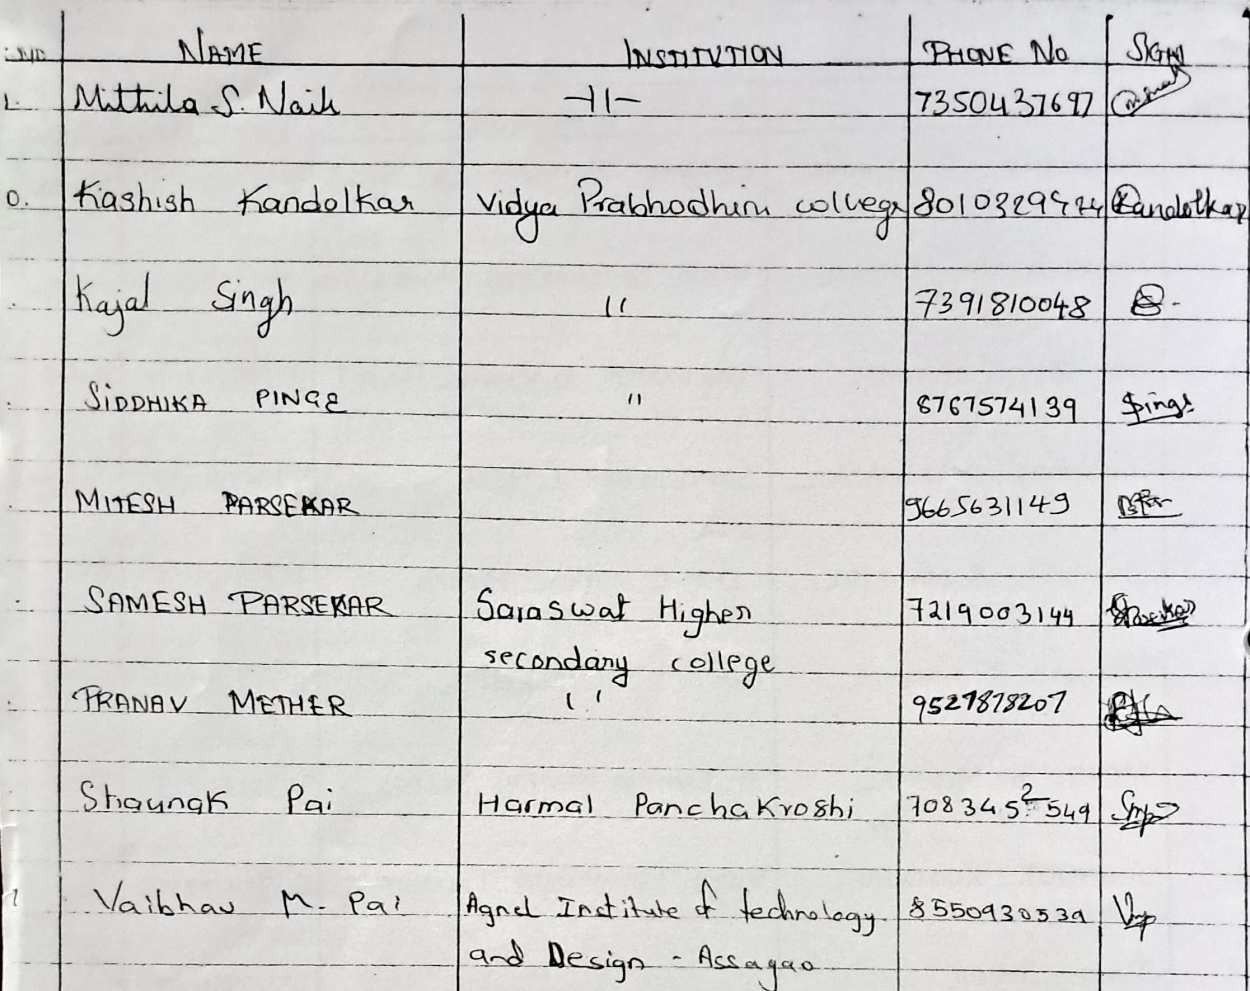 NAME INSTITUTION PHONE No SIGN
Mithila S. Naik -11- 7350437697
0. Kashish Kandolkar Vidya Prabhodhini college Kandolkar
Kajal Singh 11 7391810048
SIDDHIKA PINGE " 8767574139 Pinge
MITESH PARSEKAR 9665631149
SAMESH PARSEKAR Saraswat Higher 7219003144
secondary college
PRANAV METHER " 9527878207
Shaunak Pai Harmal Panchakroshi 7083452549
Vaibhav M. Pai Agnel Institute of technology 8550930539
and Design - Assagao